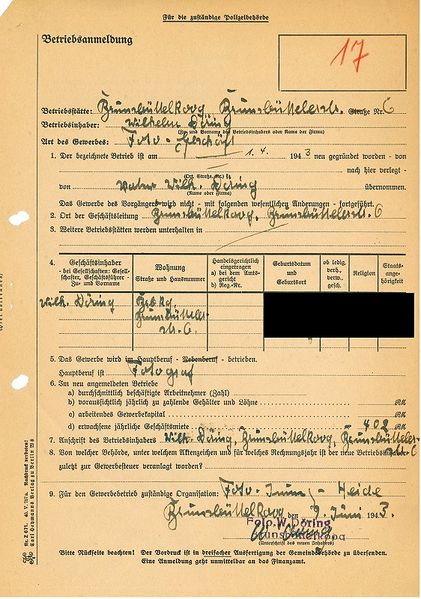 Für die zuständige Polizeibehörde
Betriebsanmeldung
17
Betriebsstätte: Brunsbüttelkoog, Brunsbüttelerstr. Straße Nr. 6
Betriebsinhaber: Wilhelm Döring
(Zu- und Vorname des Betriebsinhabers oder Name der Firma)
Art des Gewerbes: Foto-Geschäft
1. Der bezeichnete Betrieb ist am 1. 4. 1943 neu gegründet worden - von
nach hier verlegt -
(Ort, Straße, Nr.)
von Vater Wilh. Döring übernommen.
(Zu- und Vorname des Betriebsinhabers oder Name der Firma)
Das Gewerbe des Vorgängers wird nicht - mit folgenden wesentlichen Änderungen - fortgeführt.
2. Ort der Geschäftsleitung Brunsbüttelkoog, Brunsbüttelerstr. 6
3. Weitere Betriebsstätten werden unterhalten in
4. Geschäftsinhaber - bei Gesellschaften: Gesellschafter, Geschäftsführer - Zu- und Vorname
Wohnung Straße und Hausnummer
Handelsgerichtlich eingetragen a) bei dem Amtsgericht b) Reg.-Nr.
Geburtsdatum und Geburtsort
ob ledig, verh., verw., gesch.
Religion
Staatsangehörigkeit
Wilh. Döring
Brunsbütteler-
str. 6.
5. Das Gewerbe wird im Hauptberuf - Nebenberuf - betrieben.
Hauptberuf ist Fotograf
6. Im neu angemeldeten Betriebe
a) durchschnittlich beschäftigte Arbeitnehmer (Zahl)
b) voraussichtlich jährlich zu zahlende Gehälter und Löhne RM
c) arbeitendes Gewerbekapital RM
d) erwachsene jährliche Geschäftsmiete 402 RM
7. Anschrift des Betriebsinhabers Wilh. Döring, Brunsbüttelkoog, Brunsbütteler-
str. 6
8. Von welcher Behörde, unter welchem Aktenzeichen und für welches Rechnungsjahr ist der neue Betriebsinhaber
zuletzt zur Gewerbesteuer veranlagt worden?
9. Für den Gewerbebetrieb zuständige Organisation: Foto-Innung - Heide
Brunsbüttelkoog den 9. Juni 1943.
Foto W. Döring
Brunsbüttelkoog
(Unterschrift des neuen Inhabers)
Bitte Rückseite beachten! Der Vordruck ist in dreifacher Ausfertigung der Gemeindebehörde zu übersenden.
Eine Anmeldung geht unmittelbar an das Finanzamt.
Nachdruck verboten!
Carl Heymanns Verlag zu Berlin W 8